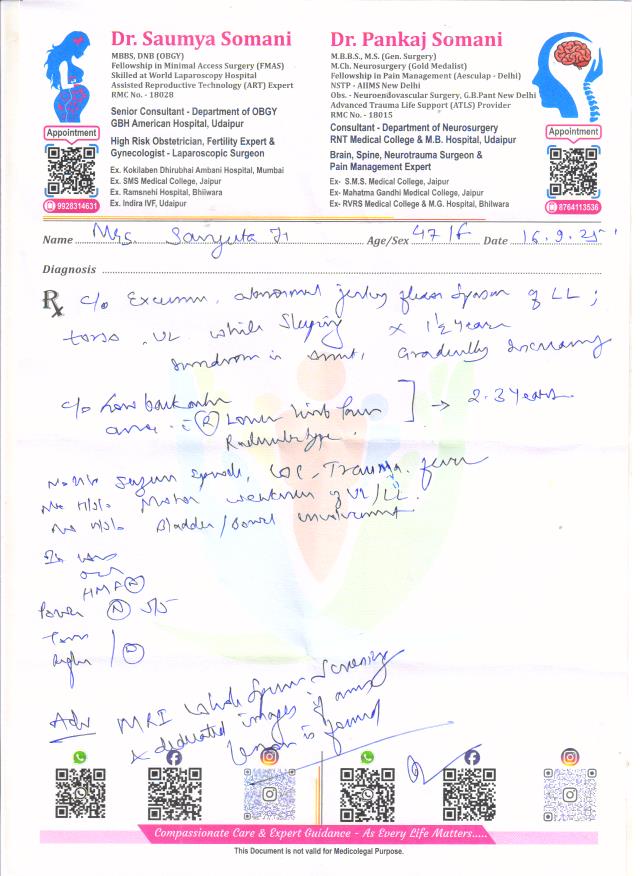 Dr. Saumya Somani
MBBS, DNB (OBGY)
Fellowship in Minimal Access Surgery (FMAS)
Skilled at World Laparoscopy Hospital
Assisted Reproductive Technology (ART) Expert
RMC No. - 18028
Senior Consultant - Department of OBGY
GBH American Hospital, Udaipur
High Risk Obstetrician, Fertility Expert &
Gynecologist - Laparoscopic Surgeon
Ex. Kokilaben Dhirubhai Ambani Hospital, Mumbai
Ex. SMS Medical College, Jaipur
Ex. Ramsnehi Hospital, Bhilwara
Ex. Indira IVF, Udaipur
Appointment
9928314631
Dr. Pankaj Somani
M.B.B.S., M.S. (Gen. Surgery)
M.Ch. Neurosurgery (Gold Medalist)
Fellowship in Pain Management (Aesculap - Delhi)
NSTP - AIIMS New Delhi
Obs. - Neuroendovascular Surgery, G.B.Pant New Delhi
Advanced Trauma Life Support (ATLS) Provider
RMC No. - 18015
Consultant - Department of Neurosurgery
RNT Medical College & M.B. Hospital, Udaipur
Brain, Spine, Neurotrauma Surgeon &
Pain Management Expert
Ex- S.M.S. Medical College, Jaipur
Ex- Mahatma Gandhi Medical College, Jaipur
Ex- RVRS Medical College & M.G. Hospital, Bhilwara
Appointment
8764113536
Name Mrs. Sanyuta Ji Age/Sex 47/F Date 16.9.25
Diagnosis
Rx c/o abnormal jerky of LL ;
torso, UL while sleeping x 1½ years
Gradually increasing
c/o low back
area c (R) Lower limb pain → 2-3 years
Radicular type.
LOC, Trauma, fever
No H/o Motor weakness of UL/LL.
No H/o Bladder/Bowel involvement
HMF (N)
Power (N) 5/5
Tone
Adv MRI Whole Spine Screening
& dedicated images if any
lesion is found
Compassionate Care & Expert Guidance - As Every Life Matters.....
This Document is not valid for Medicolegal Purpose.